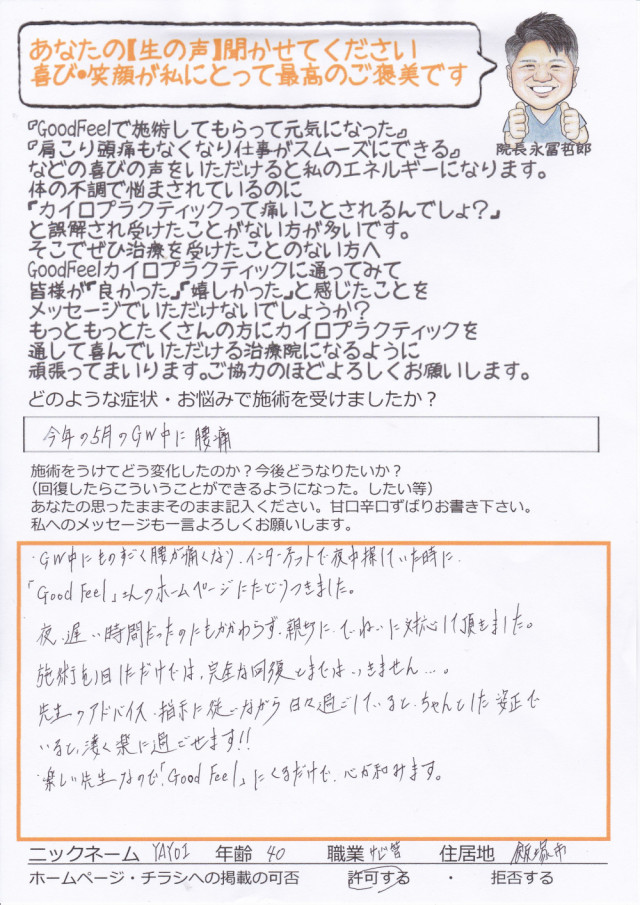 あなたの【生の声】聞かせてください
喜び・笑顔が私にとって最高のご褒美です
院長 永冨哲郎
『GoodFeelで施術してもらって元気になった』
『肩こり頭痛もなくなり仕事がスムーズにできる』
などの喜びの声をいただけると私のエネルギーになります。
体の不調で悩まされているのに
『カイロプラクティックって痛いことされるんでしょ?』
と誤解され受けたことがない方が多いです。
そこでぜひ治療を受けたことのない方へ
GoodFeelカイロプラクティックに通ってみて
皆様が『良かった』『嬉しかった』と感じたことを
メッセージでいただけないでしょうか?
もっともっとたくさんの方にカイロプラクティックを
通して喜んでいただける治療院になるように
頑張ってまいります。ご協力のほどよろしくお願いします。
どのような症状・お悩みで施術を受けましたか?
今年の5月のGW中に腰痛
施術をうけてどう変化したのか?今後どうなりたいか?
(回復したらこういうことができるようになった。したい等)
あなたの思ったままそのまま記入ください。甘口辛口ずばりお書き下さい。
私へのメッセージも一言よろしくお願いします。
・GW中にものすごく腰が痛くなり、インターネットで夜中探していた時に、
「Good Feel」さんのホームページにたどりつきました。
夜、遅い時間だったのにもかかわらず、親切に、ていねいに対応して頂きました。
施術を1回しただけでは、完全な回復とまではいきません…。
先生のアドバイス、指示に従いながら日々過ごしていると、ちゃんとした姿正で
いると、凄く楽に過ごせます!!
・楽しい先生なので、「Good Feel」にくるだけで、心が和みます。
ニックネーム YAYOI 年齢 40 職業 住居地 飯塚市
ホームページ・チラシへの掲載の可否 許可する ・ 拒否する